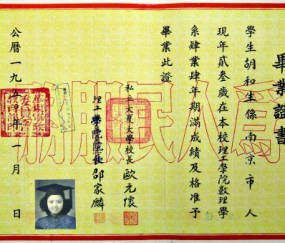 畢業證書
學生胡和生係南京市人
現年貳叁歲在本校理工學院數理學
系肄業肆年期滿成績及格准予
畢業此證
私立大夏大學校長 歐元懷
理工學院院長 邵家麟
公曆一九五〇年 一月 日
為人民服務